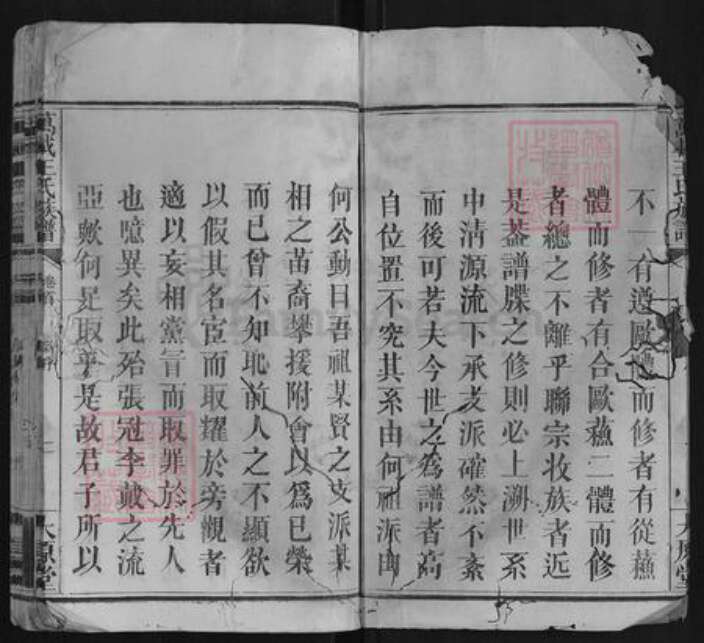 不一有遵歐體而修者有從蘓
體而修者有合歐蘓二體而修
者總之不離乎聯宗收族者近
是葢譜牒之修則必上溯世系
中清源流下承支派確然不紊
而後可若夫今世之為譜者高
自位置不究其系由何祖派由
何公動曰吾祖某賢之支派某
相之苗裔攀援附會以為已榮
而已曾不知耻前人之不顯欲
以假其名宦而取耀於旁觀者
適以妄相黨冐而取罪於先人
也噫異矣此殆張冠李戴之流
亞歟何足取乎是故君子所以
萬城王氏族譜
卷首
太原堂